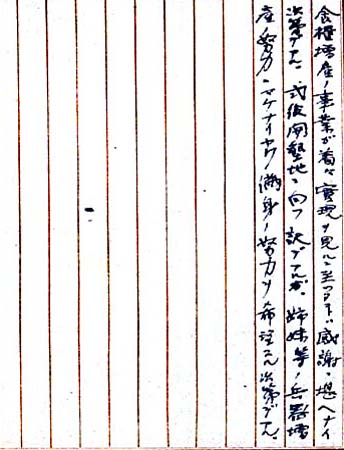 食糧増産ノ事業が着々実現ヲ見ルニ至ツタコトハ感謝ニ堪ヘナイ
次第デス。弐俣開墾地ニ向フ訳デスガ、姉妹等ノ兵器増
産努力ニマケナイヤウ満身ノ努力ヲ希望スル次第デス。